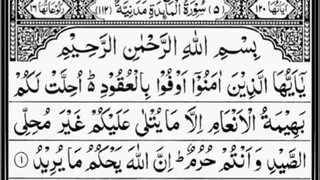 اٰیَاتُهَا ١٢٠ (٥) سُوْرَةُ الْمَآئِدَةِ مَدَنِيَّةٌ (١١٢) رُكُوْعَاتُهَا ١٦
بِسْمِ اللّٰهِ الرَّحْمٰنِ الرَّحِيْمِ
يٰٓاَيُّهَا الَّذِيْنَ اٰمَنُوْٓا اَوْفُوْا بِالْعُقُوْدِ ؕ اُحِلَّتْ لَكُمْ
بَهِيْمَةُ الْاَنْعَامِ اِلَّا مَا يُتْلٰى عَلَيْكُمْ غَيْرَ مُحِلِّى
الصَّيْدِ وَاَنْتُمْ حُرُمٌ ؕ اِنَّ اللّٰهَ يَحْكُمُ مَا يُرِيْدُ ﴿١﴾